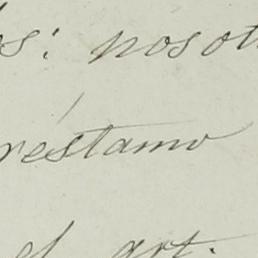 os: nosot
réstamo
el art.